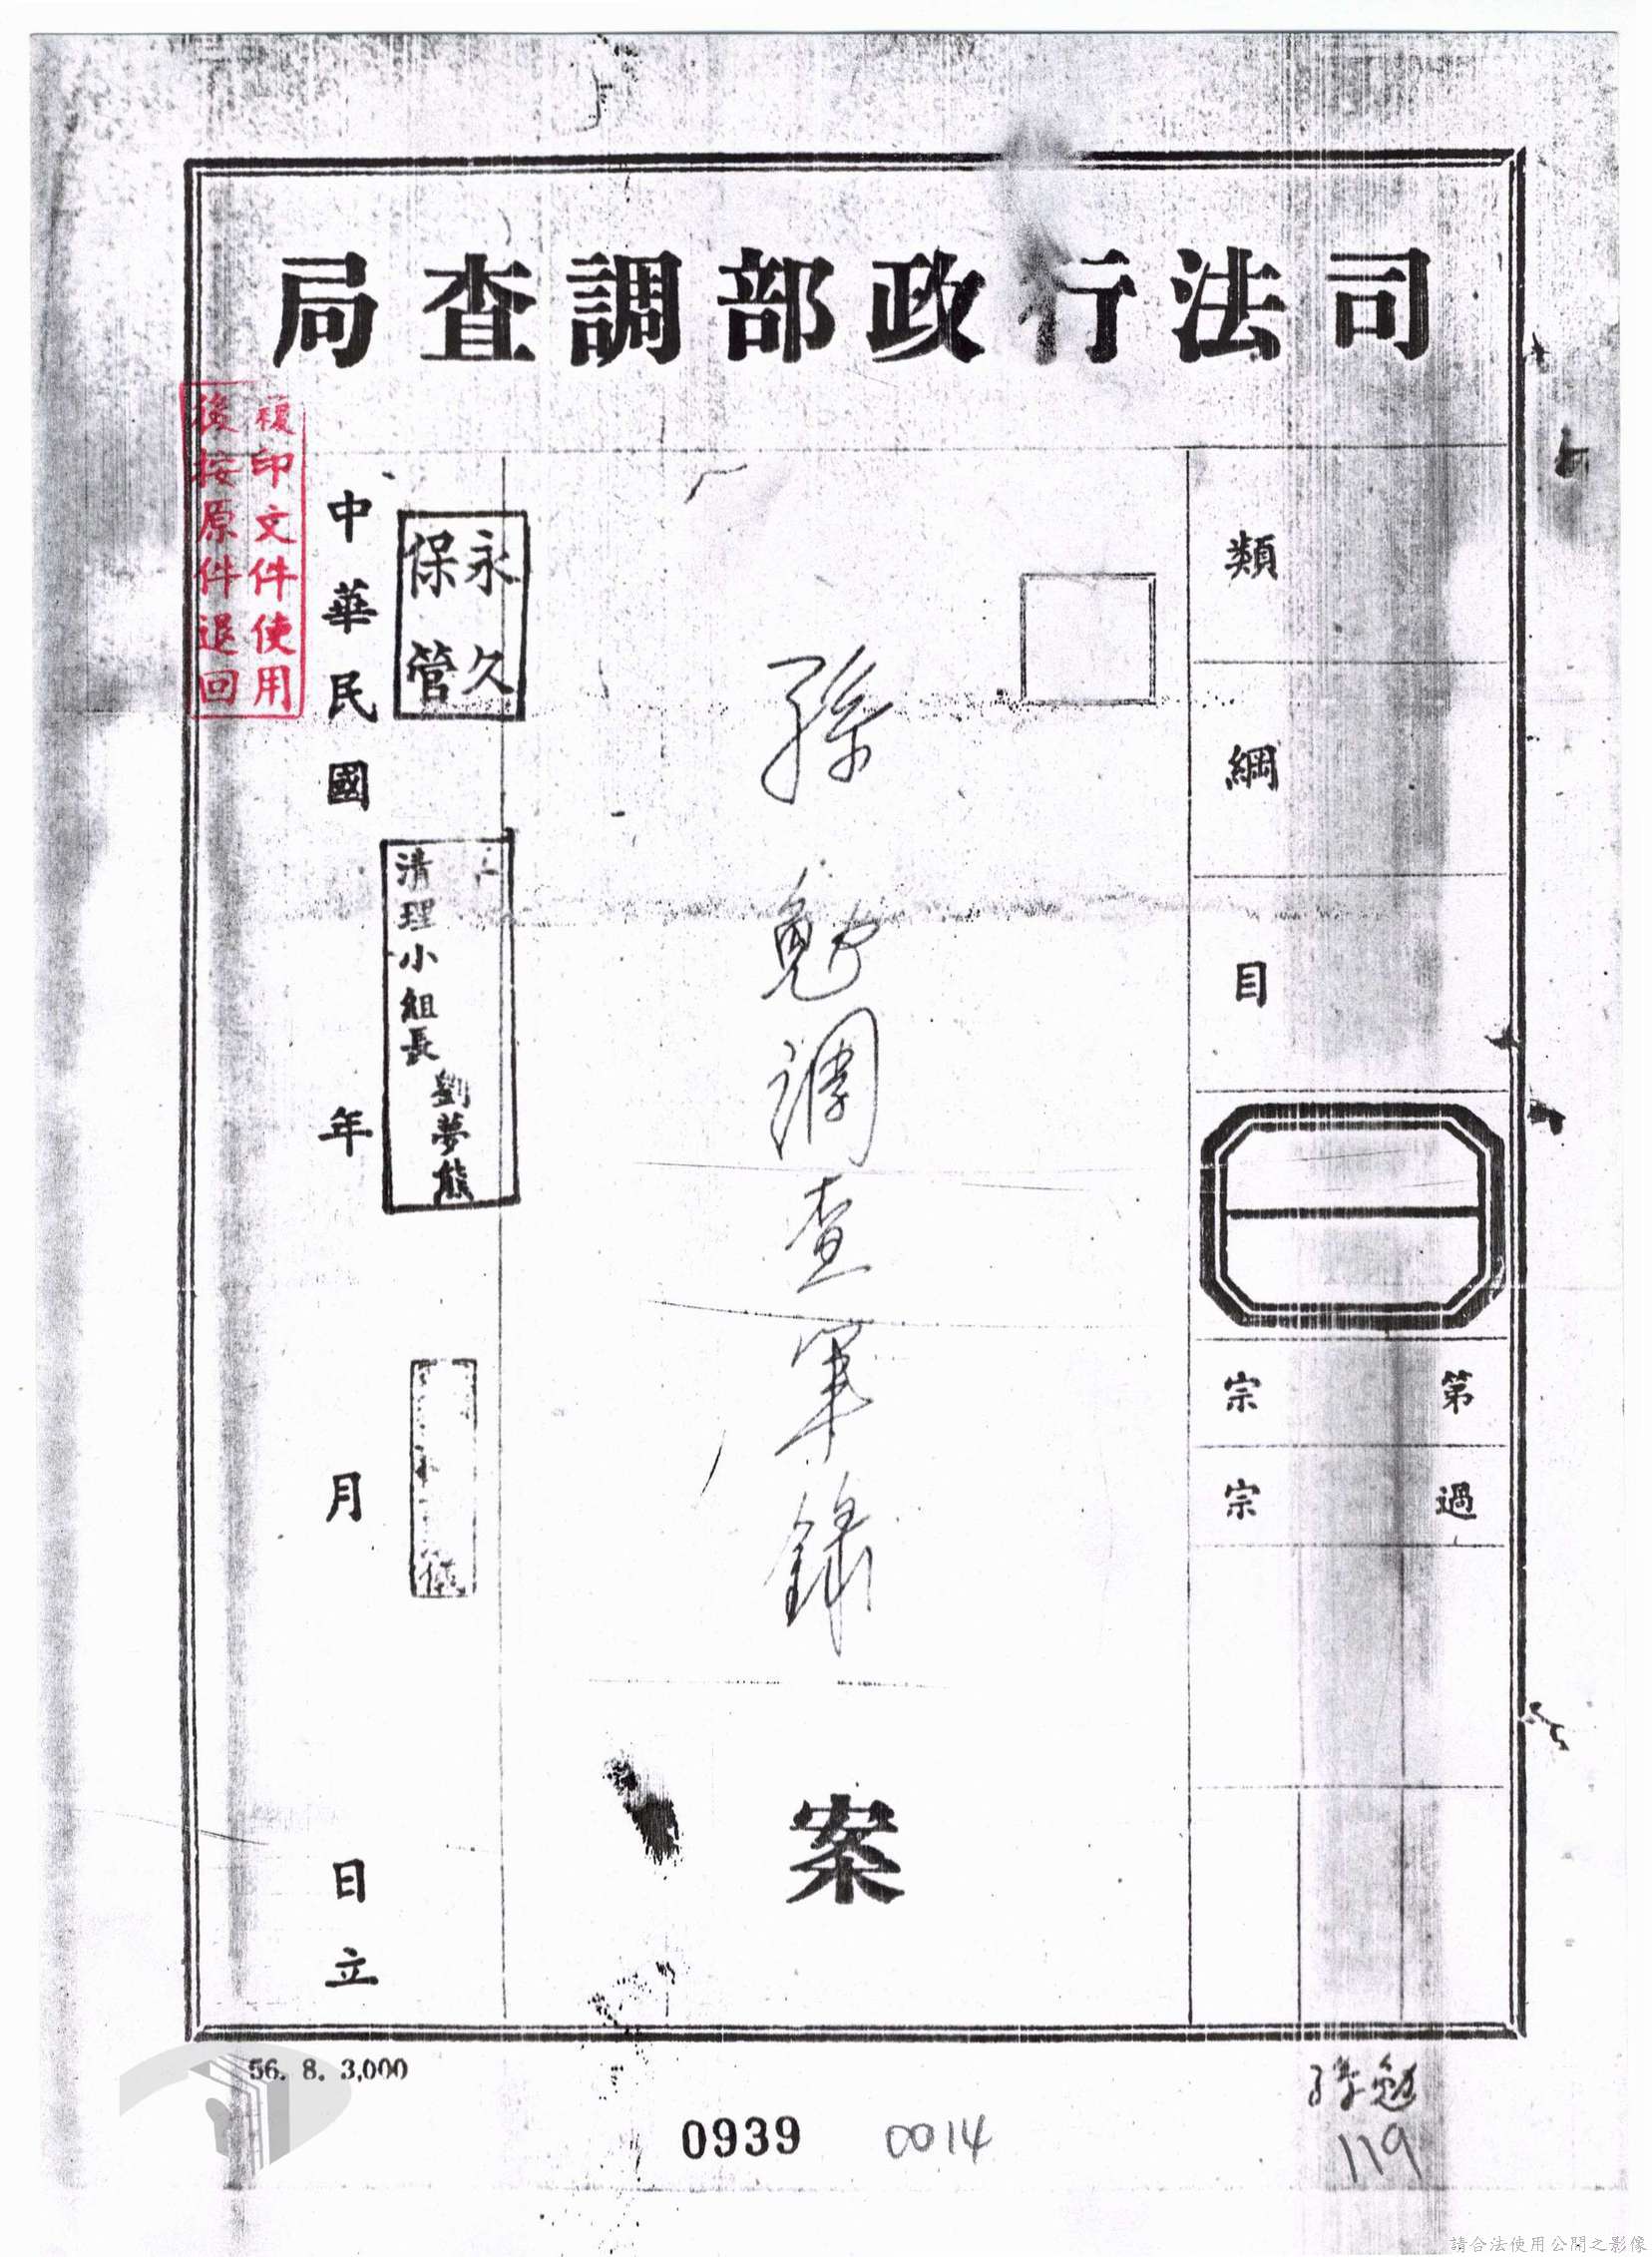 司法行政部調查局
類
綱
目
第 宗
過 宗
孫勉調查筆錄
案
永久
保管
清理小組長
劉夢熊
中華民國 年 月 日立
複印文件使用
後按原件退回
56. 8. 3,000
0939
0014
孫勉
119
請合法使用公開之影像